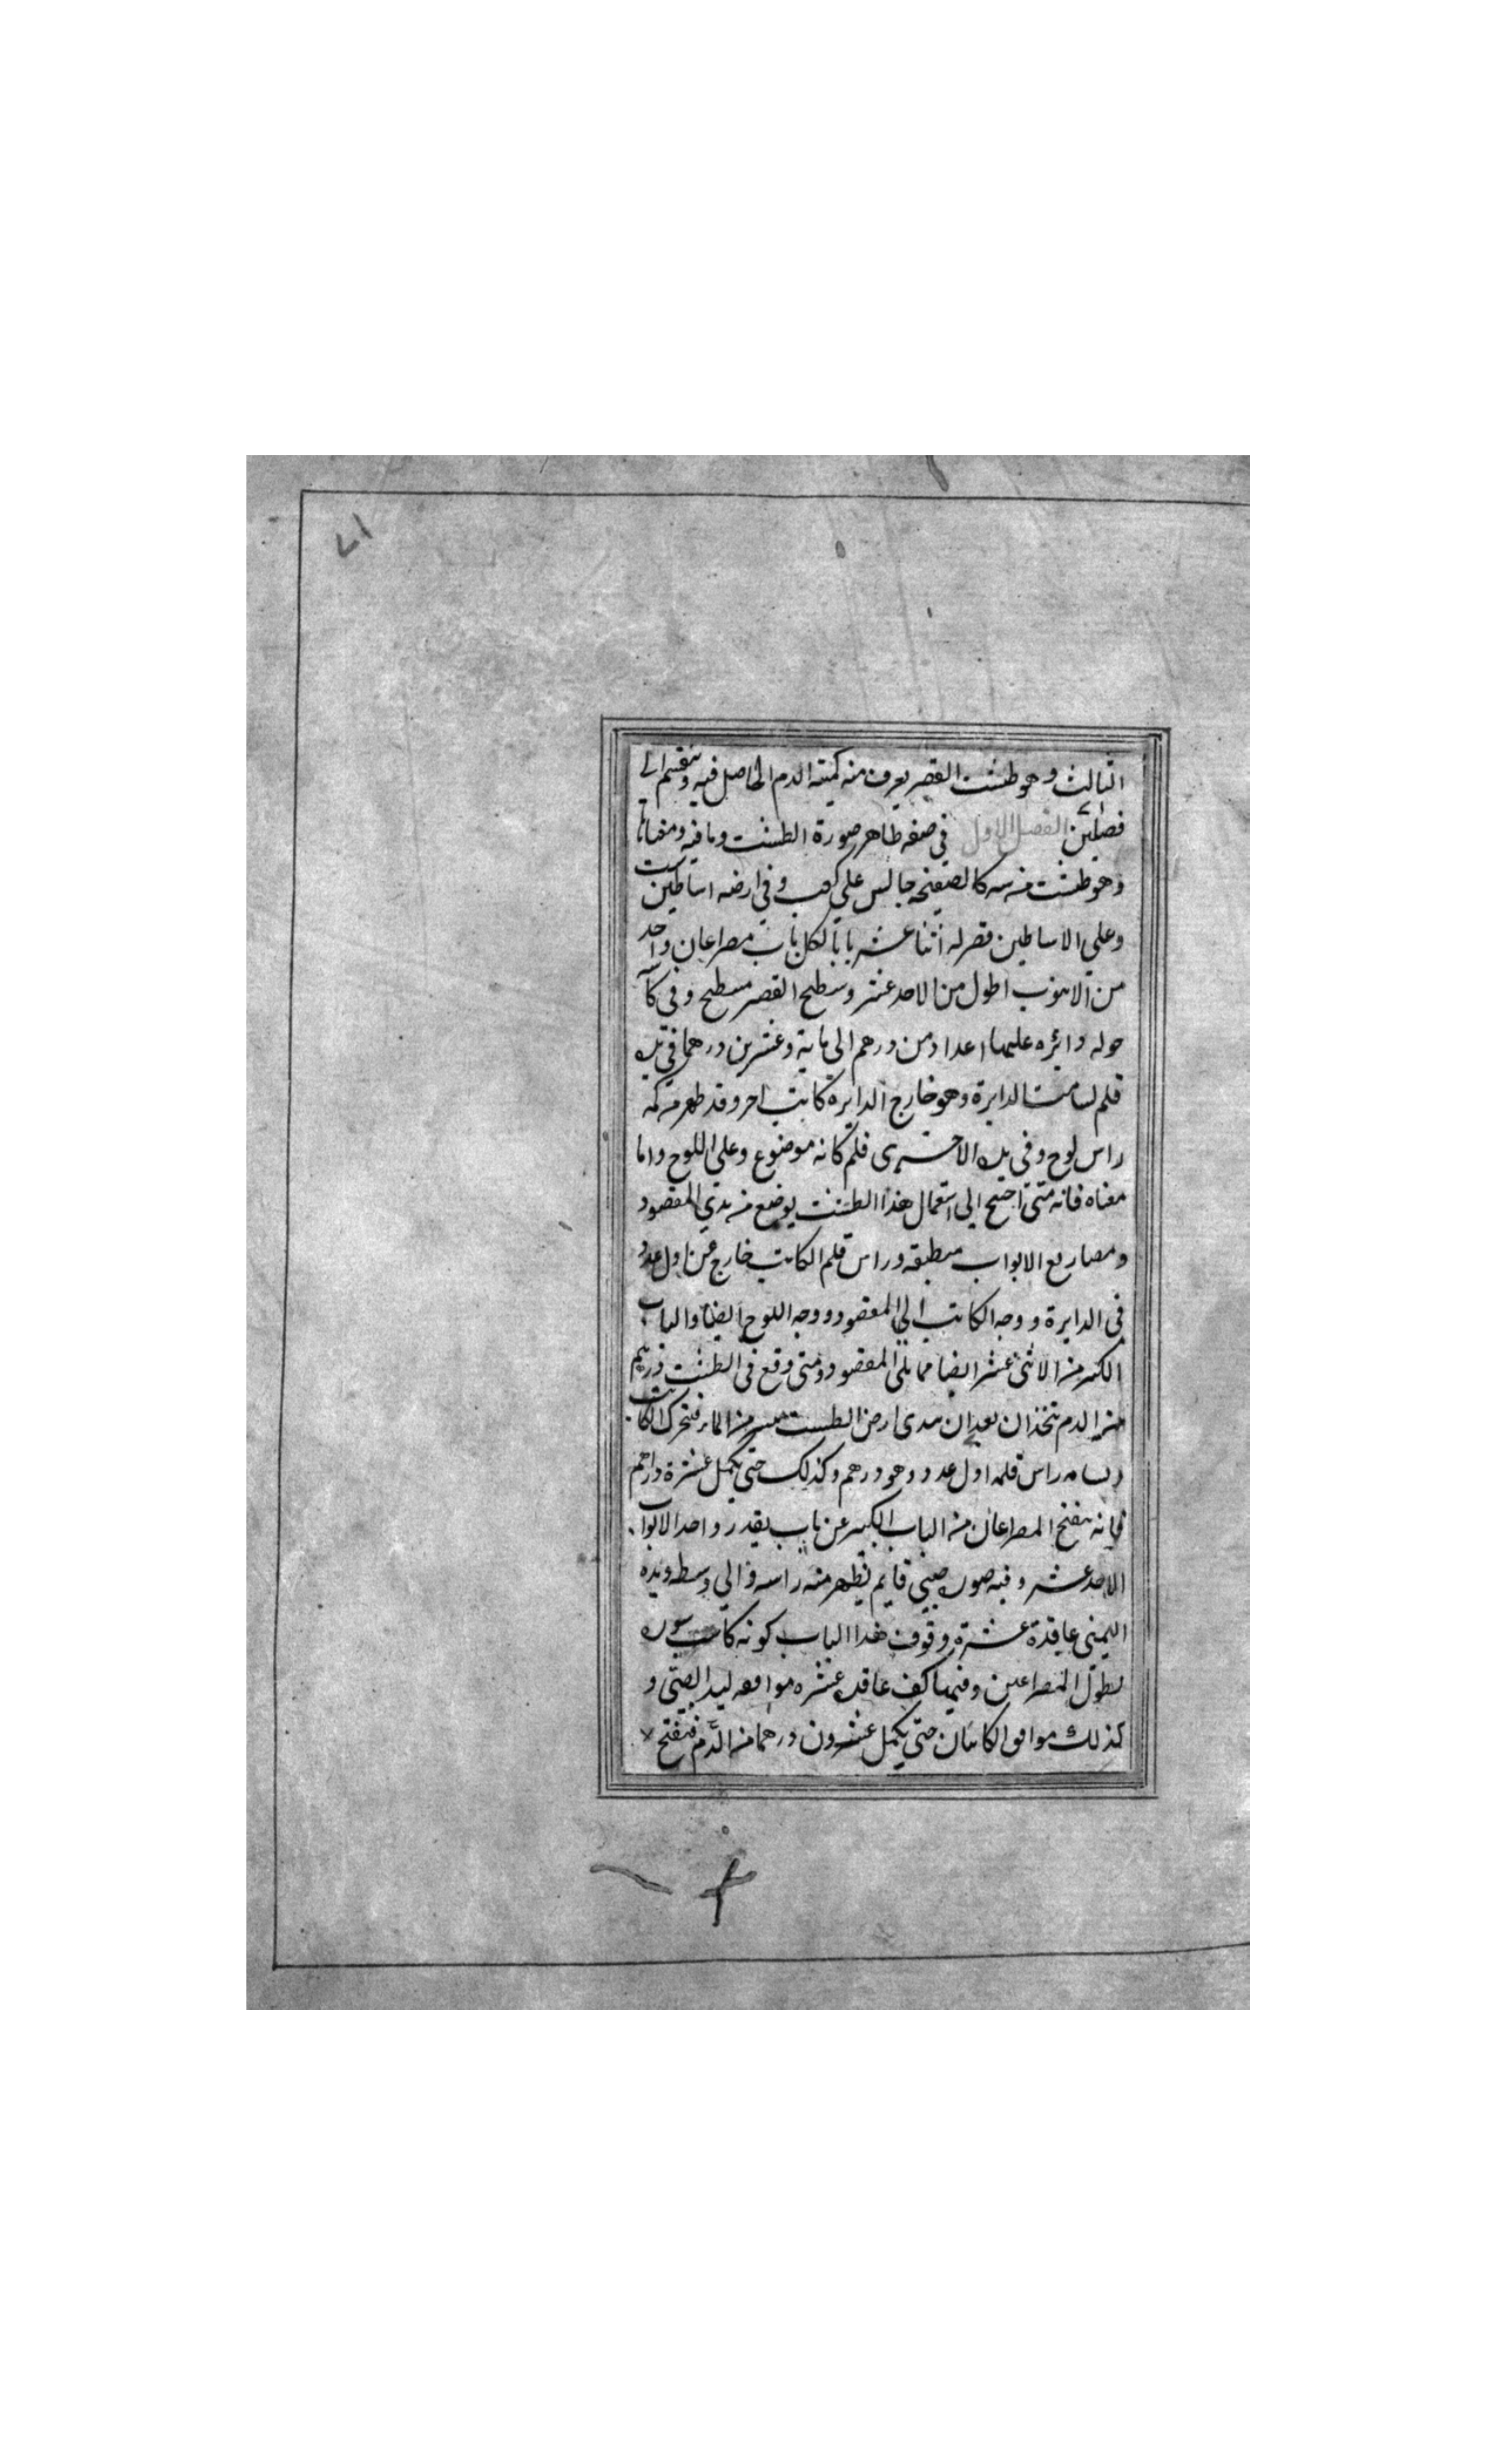 ١٧
الثالث وهو طشت القصر يعرف منه كمية الدم الحاصل فيه وينقسم الى
فصلين الفصل الاول في صفة ظاهر صورة الطشت وما فيه ومعناها
وهو طشت من شبه كالصفيحة جالس على كعب وفي ارضه اساطين
وعلى الاساطين قصر له اثنا عشر بابا لكل باب مصراعان واحد
من الابواب اطول من الاحد عشر وسطح القصر مسطح وفي كاتب
حوله دائره عليها اعداد من درهم الى ماية وعشرين درهما في يده
قلم لسامت الدايرة وهو خارج الدايرة كاتب اخر وقد ظهر من كمه
راس لوح وفي يده الاخرى قلم كانه موضوع وعلى اللوح واما
معناه فانه متى احتيج الى استعمال هذا الطشت يوضع من يدي المفصود
ومصاريع الابواب منطبقه وراس قلم الكاتب خارج عن اول عدد
في الدايرة ووجه الكاتب الى المفصود ووجه اللوح ايضا والباب
الكبير من الاثنى عشر ايضا مما يلى المفصود ومتى وقع في الطشت درهم
من الدم تتخذان بعد ان يبدى ارض الطست بيسير من الماء فتحرك الكاتب
راس قلمه اول عدد وهو درهم وكذلك حتى يكمل عشرة دراهم
فانه ينفتح المصراعان من الباب الكبير عن باب بقدر واحد الابواب
الاحد عشر وفيه صورة صبي قايم يظهر منه راسه والى وسطه ويده
اليمنى عاقدة عشرة وفوق هذا الباب كونه كانت
بطول المصراعين وفيها كف عاقده عشره موافقه ليد الصبي و
كذلك موافق الكاتبان حتى يكمل عشرون درهما من الدم فينفتح